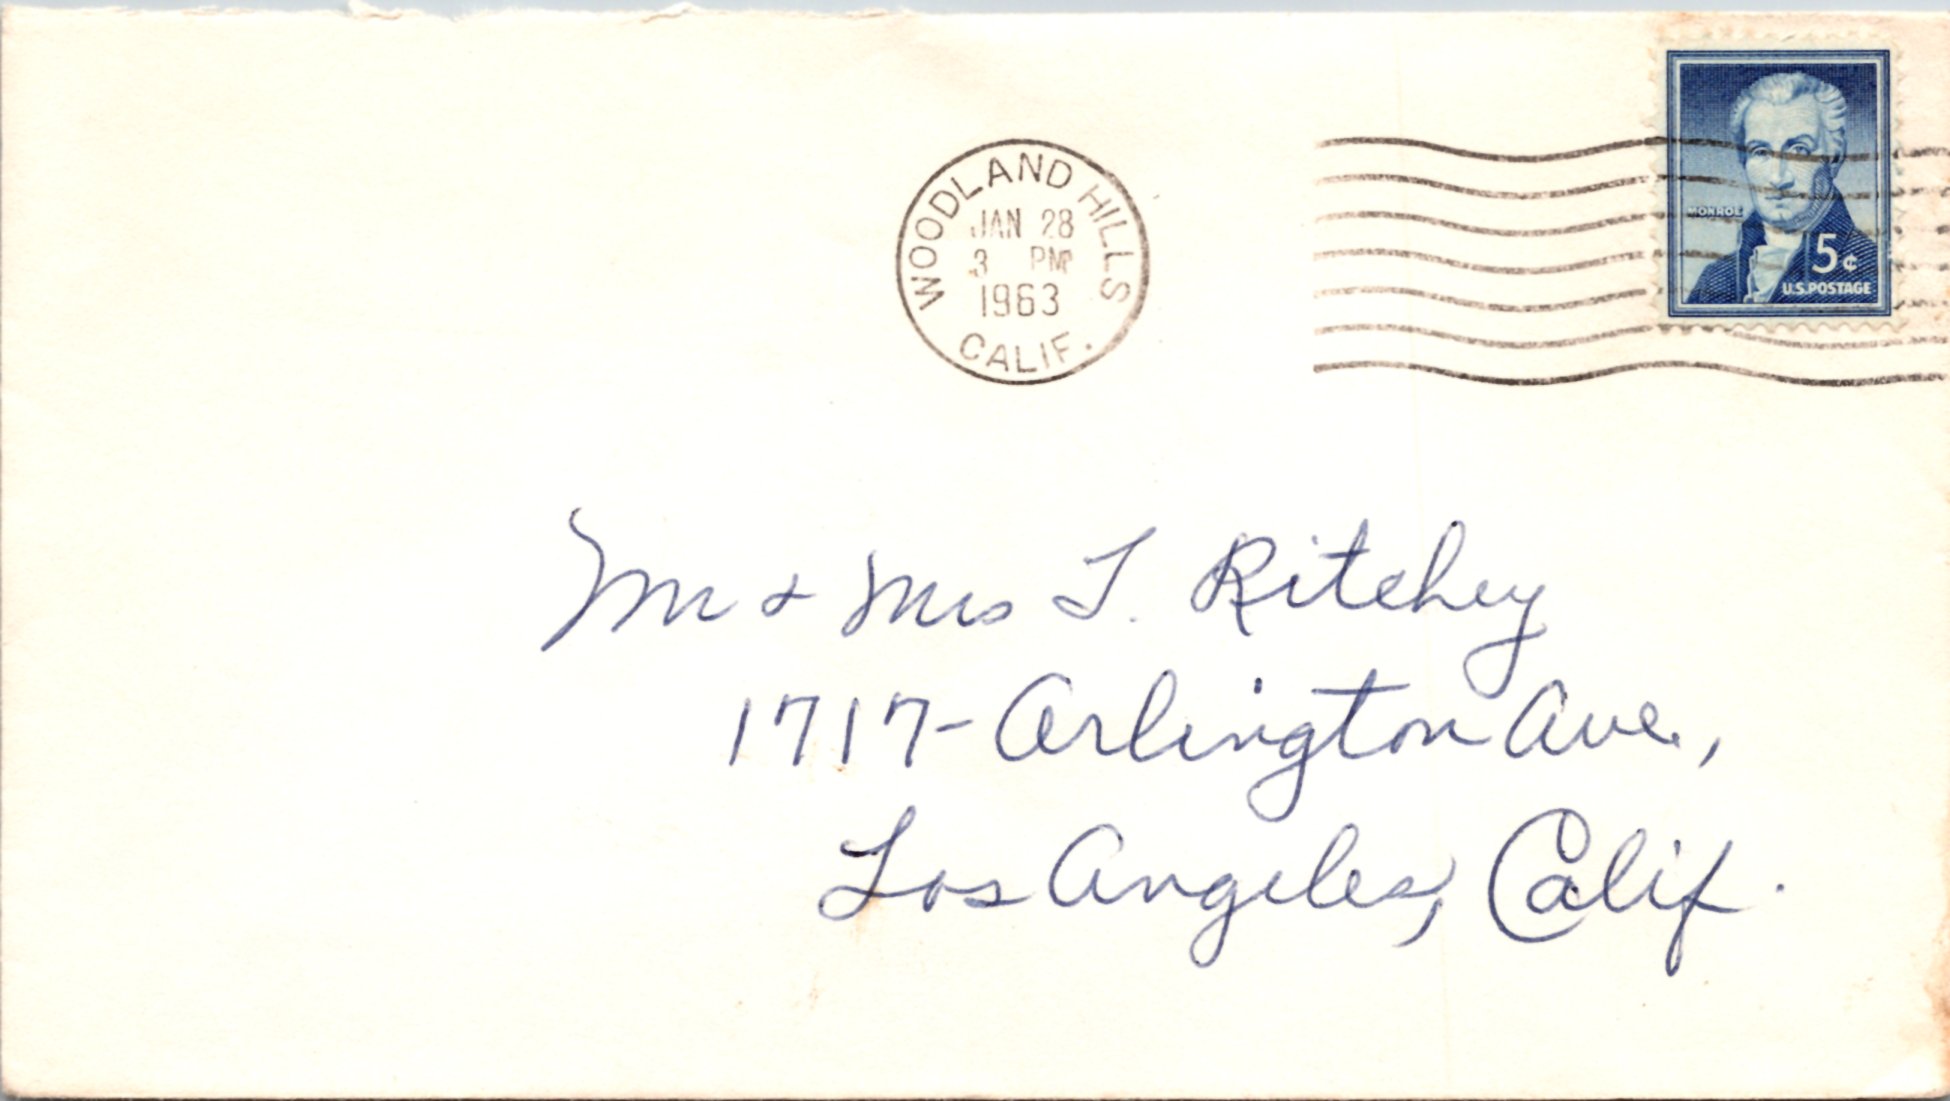 WOODLAND HILLS
JAN 28
3 PM
1963
CALIF.
MONROE
5¢
U.S. POSTAGE
Mr & Mrs T. Ritchey
1717- Arlington Ave.,
Los Angeles, Calif.